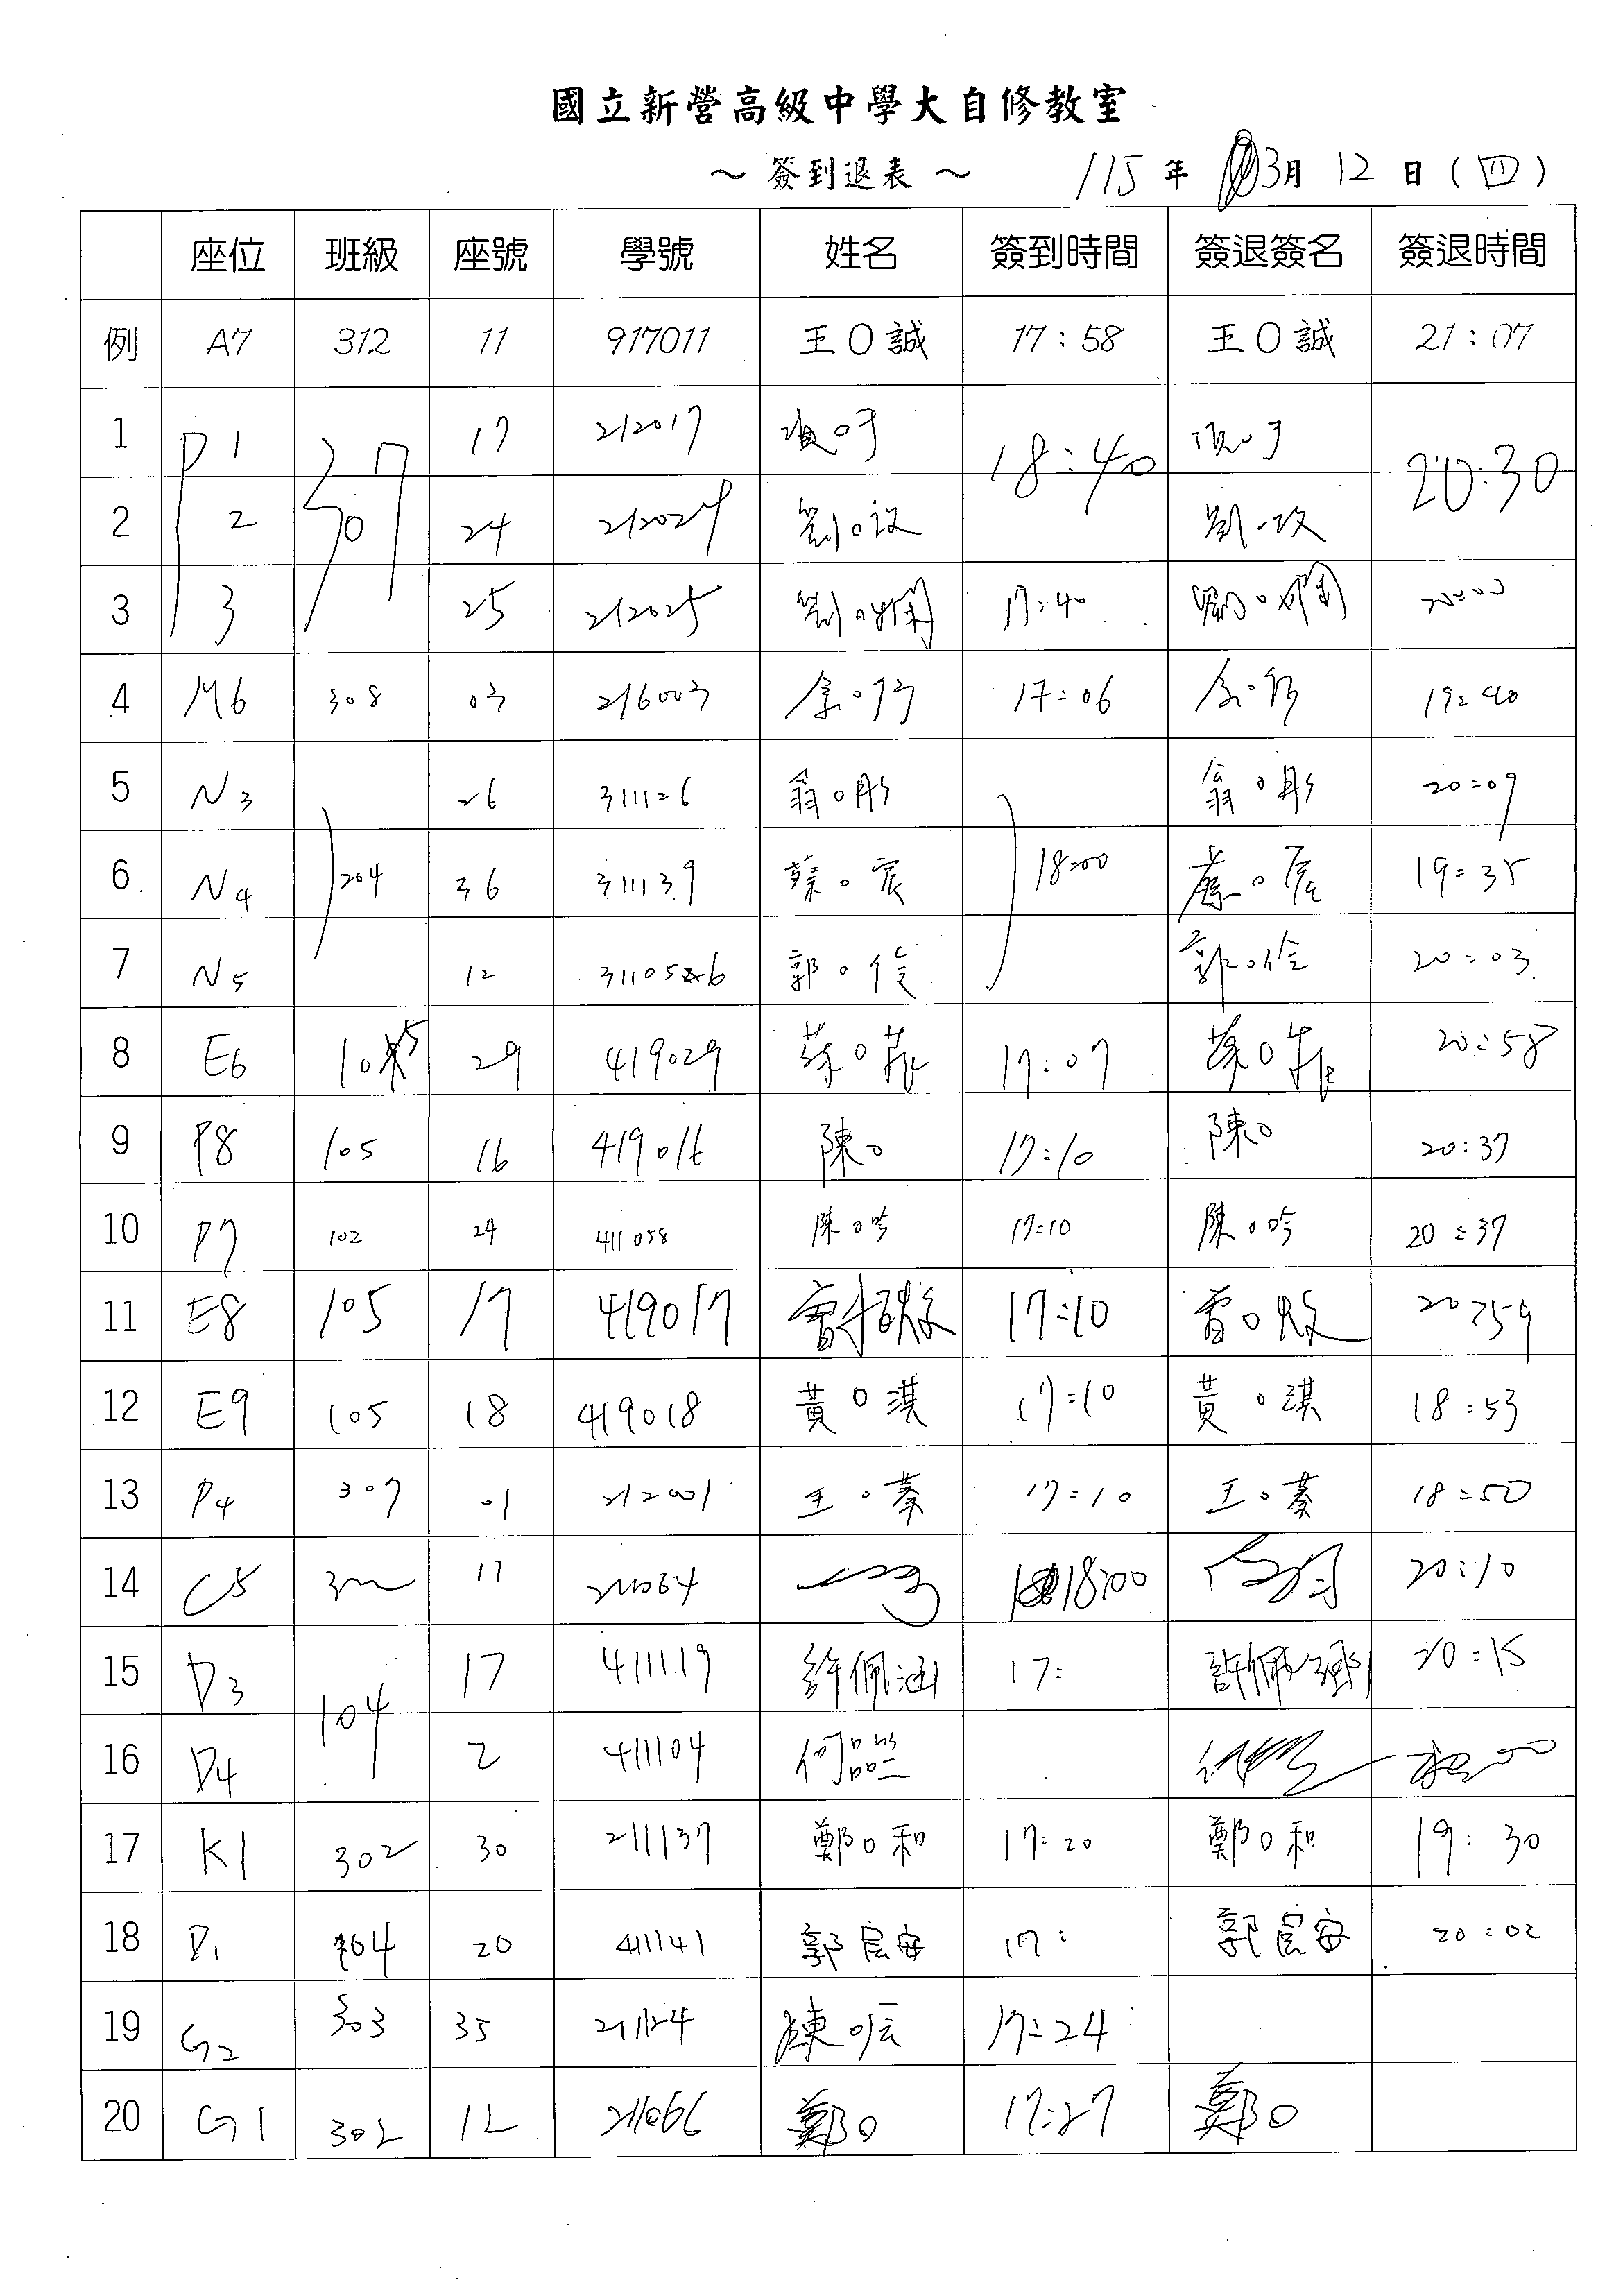 國立新營高級中學大自修教室
~ 簽到退表 ~ 115 年 3月 12 日 (四)
座位 班級 座號 學號 姓名 簽到時間 簽退簽名 簽退時間
例 A7 312 11 917011 王O誠 17:58 王O誠 21:07
1 P1 307 17 212017 18:40 20:30
2 2 24 212024 劉O
3 3 25 212025 劉O 17:40 20:03
4 M6 308 03 216003 余O 17:06 余O 19:40
5 N3 26 311126 翁O彤 翁O彤 20:09
6 N4 204 36 311139 蔡O宸 18:00 蔡O宸 19:35
7 N5 12 郭O 郭O 20:03
8 E6 105 29 419029 蔡O 17:07 20:58
9 P8 105 16 419016 陳O 17:10 陳O 20:37
10 P7 102 24 411058 陳O吟 17:10 陳O吟 20:37
11 E8 105 17 419017 17:10 20:59
12 E9 105 18 419018 黃O淇 17:10 黃O淇 18:53
13 P4 307 01 212001 王O蓁 17:10 王O蓁 18:50
14 C5 17 18:00 20:10
15 D3 104 17 411119 許佩涵 17: 許佩涵 20:15
16 D4 2 411104 何品
17 K1 302 30 211137 鄭O和 17:20 鄭O和 19:30
18 D1 104 20 411141 郭宸安 17: 郭宸安 20:02
19 G2 303 35 211124 陳O 17:24
20 G1 302 12 211066 鄭O 17:27 鄭O